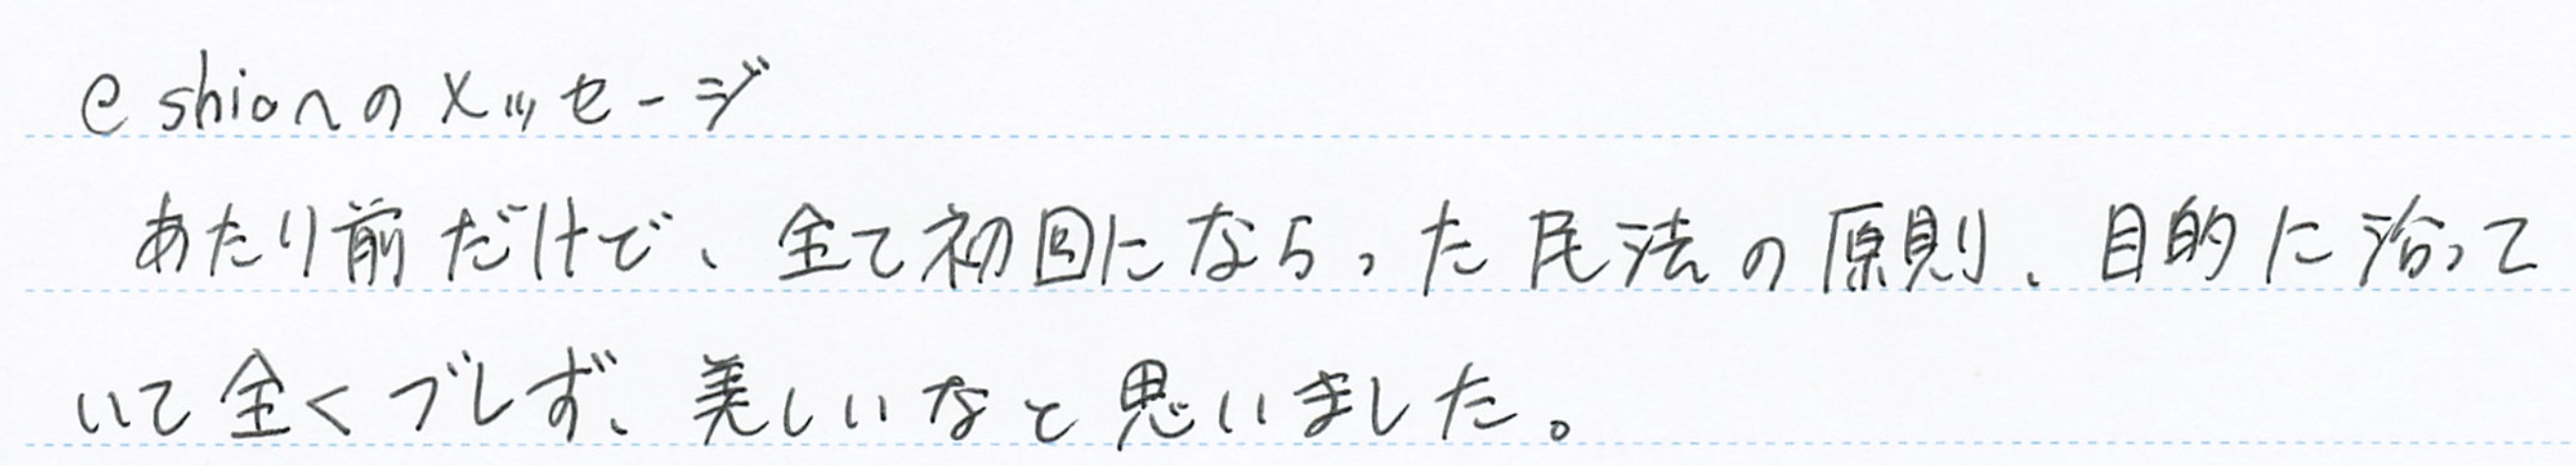 e shionへのメッセージ
あたり前だけで、全て初回にならった民法の原則、目的に沿って
いて全くブレず、美しいなと思いました。